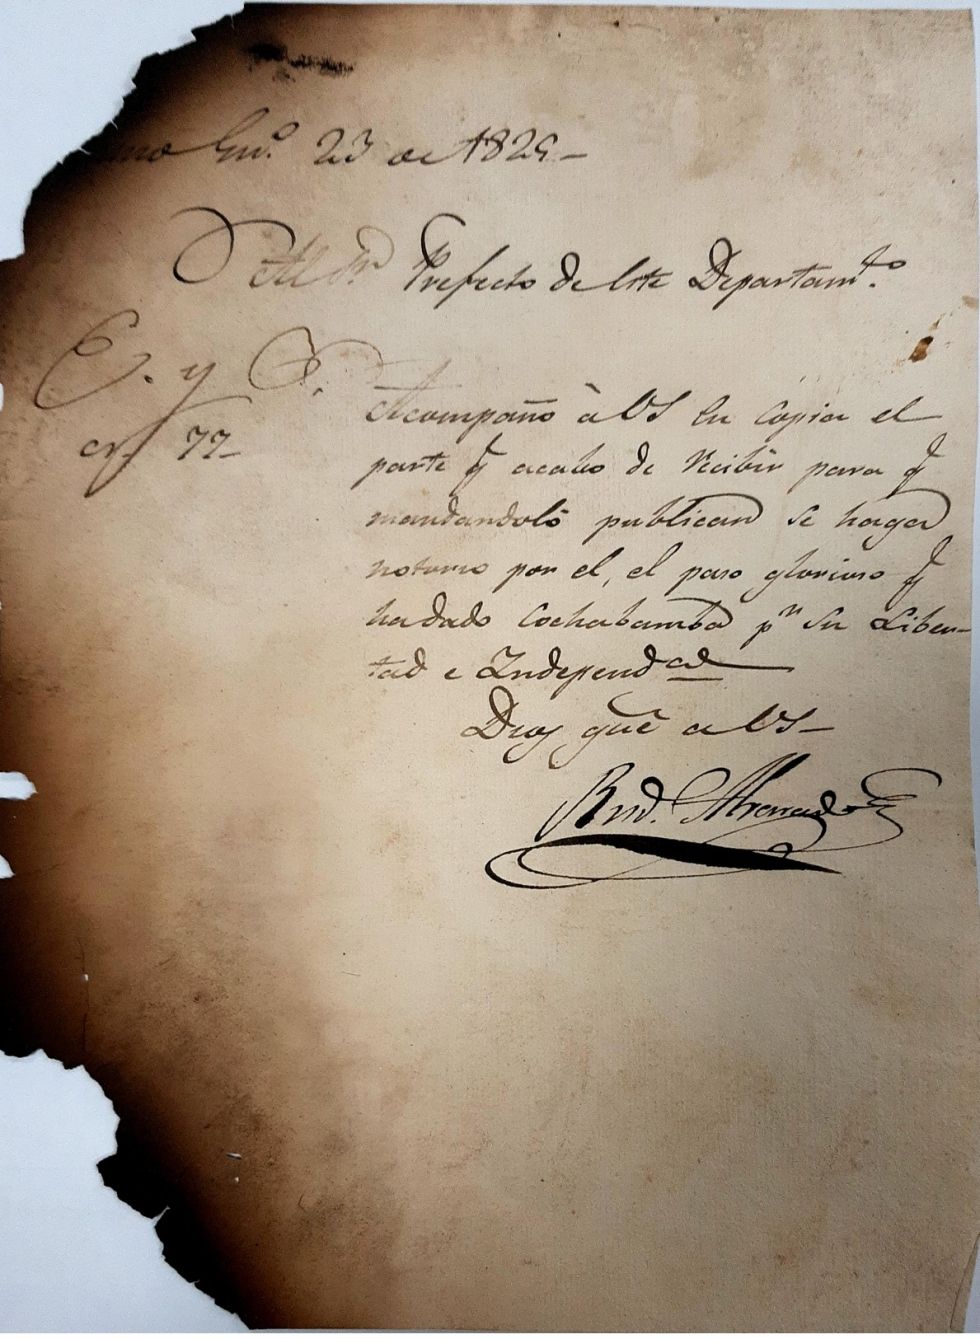 En.º 23 de 1825
Al Sr. Prefecto de este Departam.to
E. y S.
77
Acompaño à VS en copia el
parte q acabo de recibir para q
mandandolo publicar se haga
notorio por el, el paso glorioso q
ha dado Cochabamba pr su Liber-
tad e Independ.cia
Dios gue a VS
Rud.